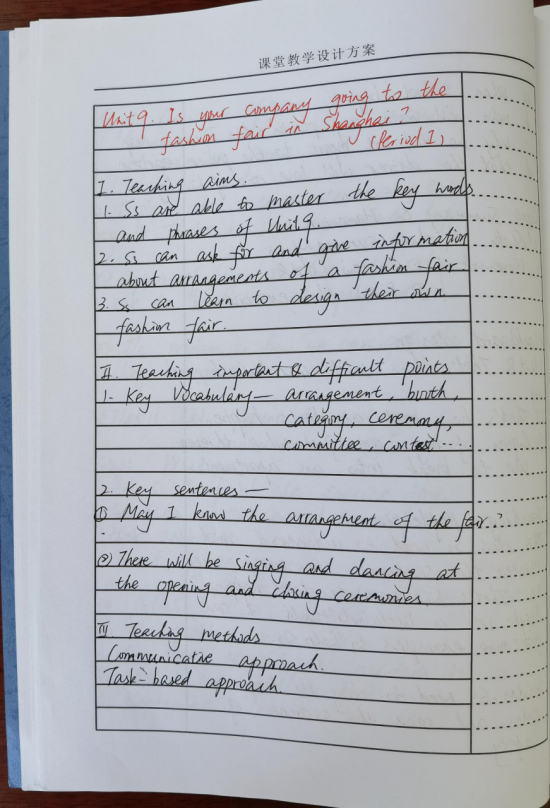 课堂教学设计方案
Unit 9. Is your company going to the
fashion fair in Shanghai?
(Period 1)
I. Teaching aims.
1. Ss are able to master the key words
and phrases of Unit 9.
2. Ss can ask for and give information
about arrangements of a fashion fair.
3. Ss can learn to design their own
fashion fair.
II. Teaching important & difficult points
1. Key Vocabulary — arrangement, booth,
category, ceremony,
committee, contest.....
2. Key sentences —
① May I know the arrangement of the fair?
② There will be singing and dancing at
the opening and closing ceremonies.
III. Teaching methods
Communicative approach.
Task-based approach.